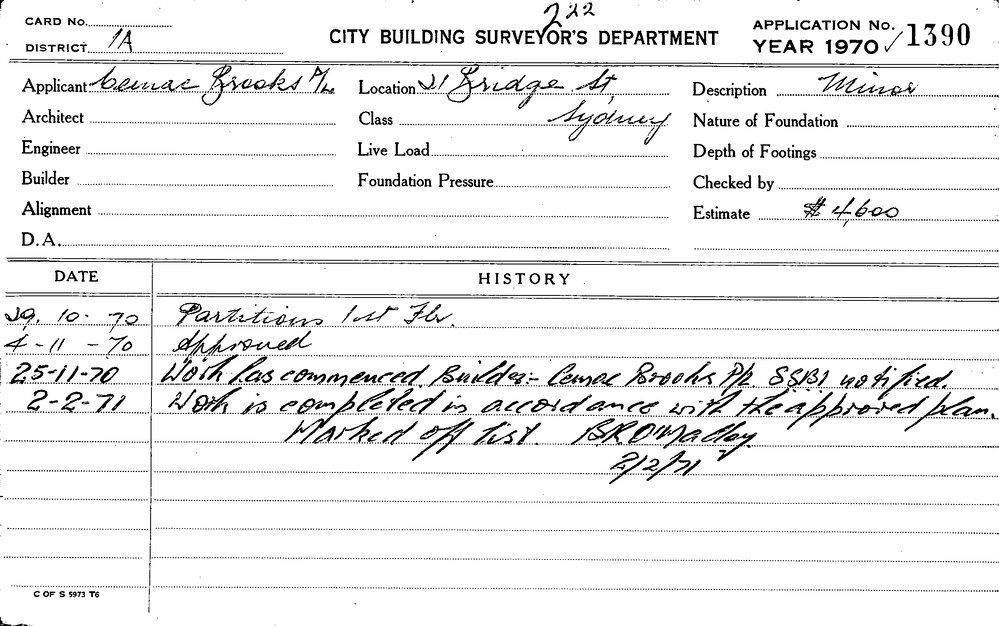 222
CARD No.
DISTRICT 1A
CITY BUILDING SURVEYOR'S DEPARTMENT
APPLICATION No.
YEAR 1970 ✓ 1390
Applicant Cemac Brooks P/L
Location 21 Bridge St,
Description Minor
Architect
Class Sydney
Nature of Foundation
Engineer
Live Load
Depth of Footings
Builder
Foundation Pressure
Checked by
Alignment
Estimate $4,600
D.A.
DATE HISTORY
29. 10. 70 Partitions 1st Flr.
4-11-70 Approved
25-11-70 Work has commenced Builder:- Cemac Brooks P/L SSBI notified.
2-2-71 Work is completed in accordance with the approved plan.
Marked off list. BRO'Malley
2/2/71
C OF S 5973 T6